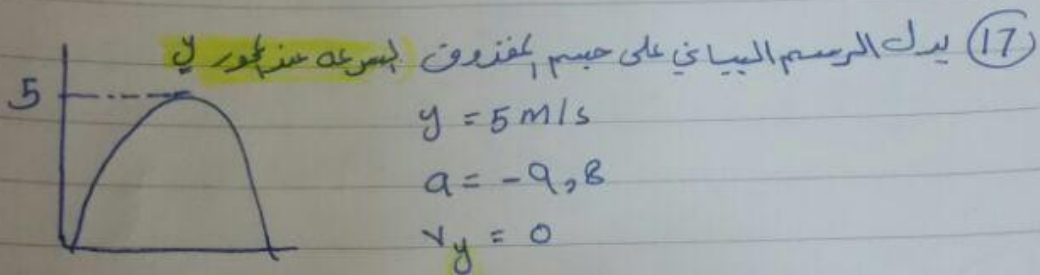 (17) يدل الرسم البياني على جسم مقذوف السرعه عند محور y
5
y = 5 m/s
a = -9,8
vy = 0